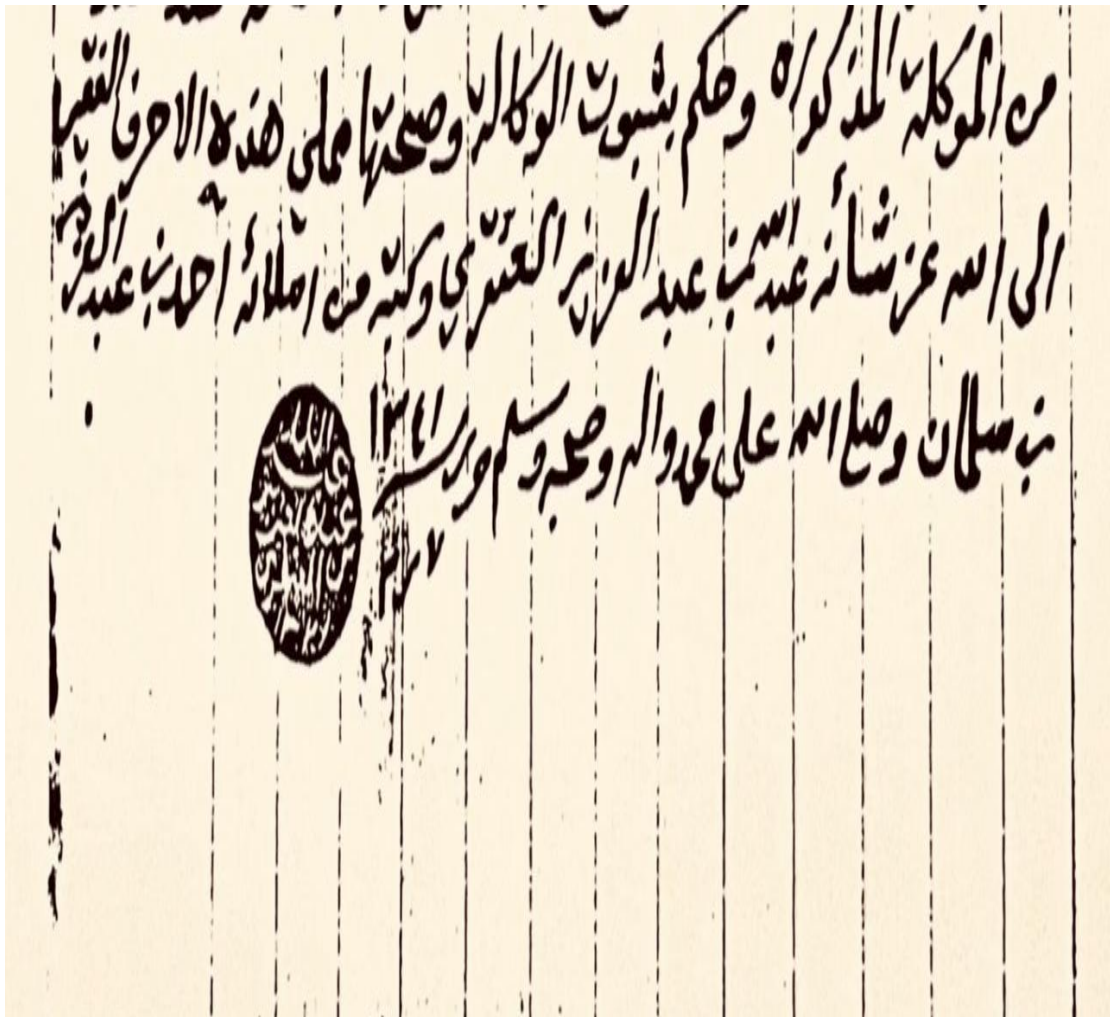 من الموكلة المذكوراه وحكم بثبوت الوكالة وصحتها مملي هذه الاحرف الفقير
الى الله عز شأنه عبد الله بن عبد العزيز العنقري وكتبه من املائه احمد بن عبد العزيز
بن سلمان وصلى الله على محمد واله وصحبه وسلم حرر سنة ١٣٤١